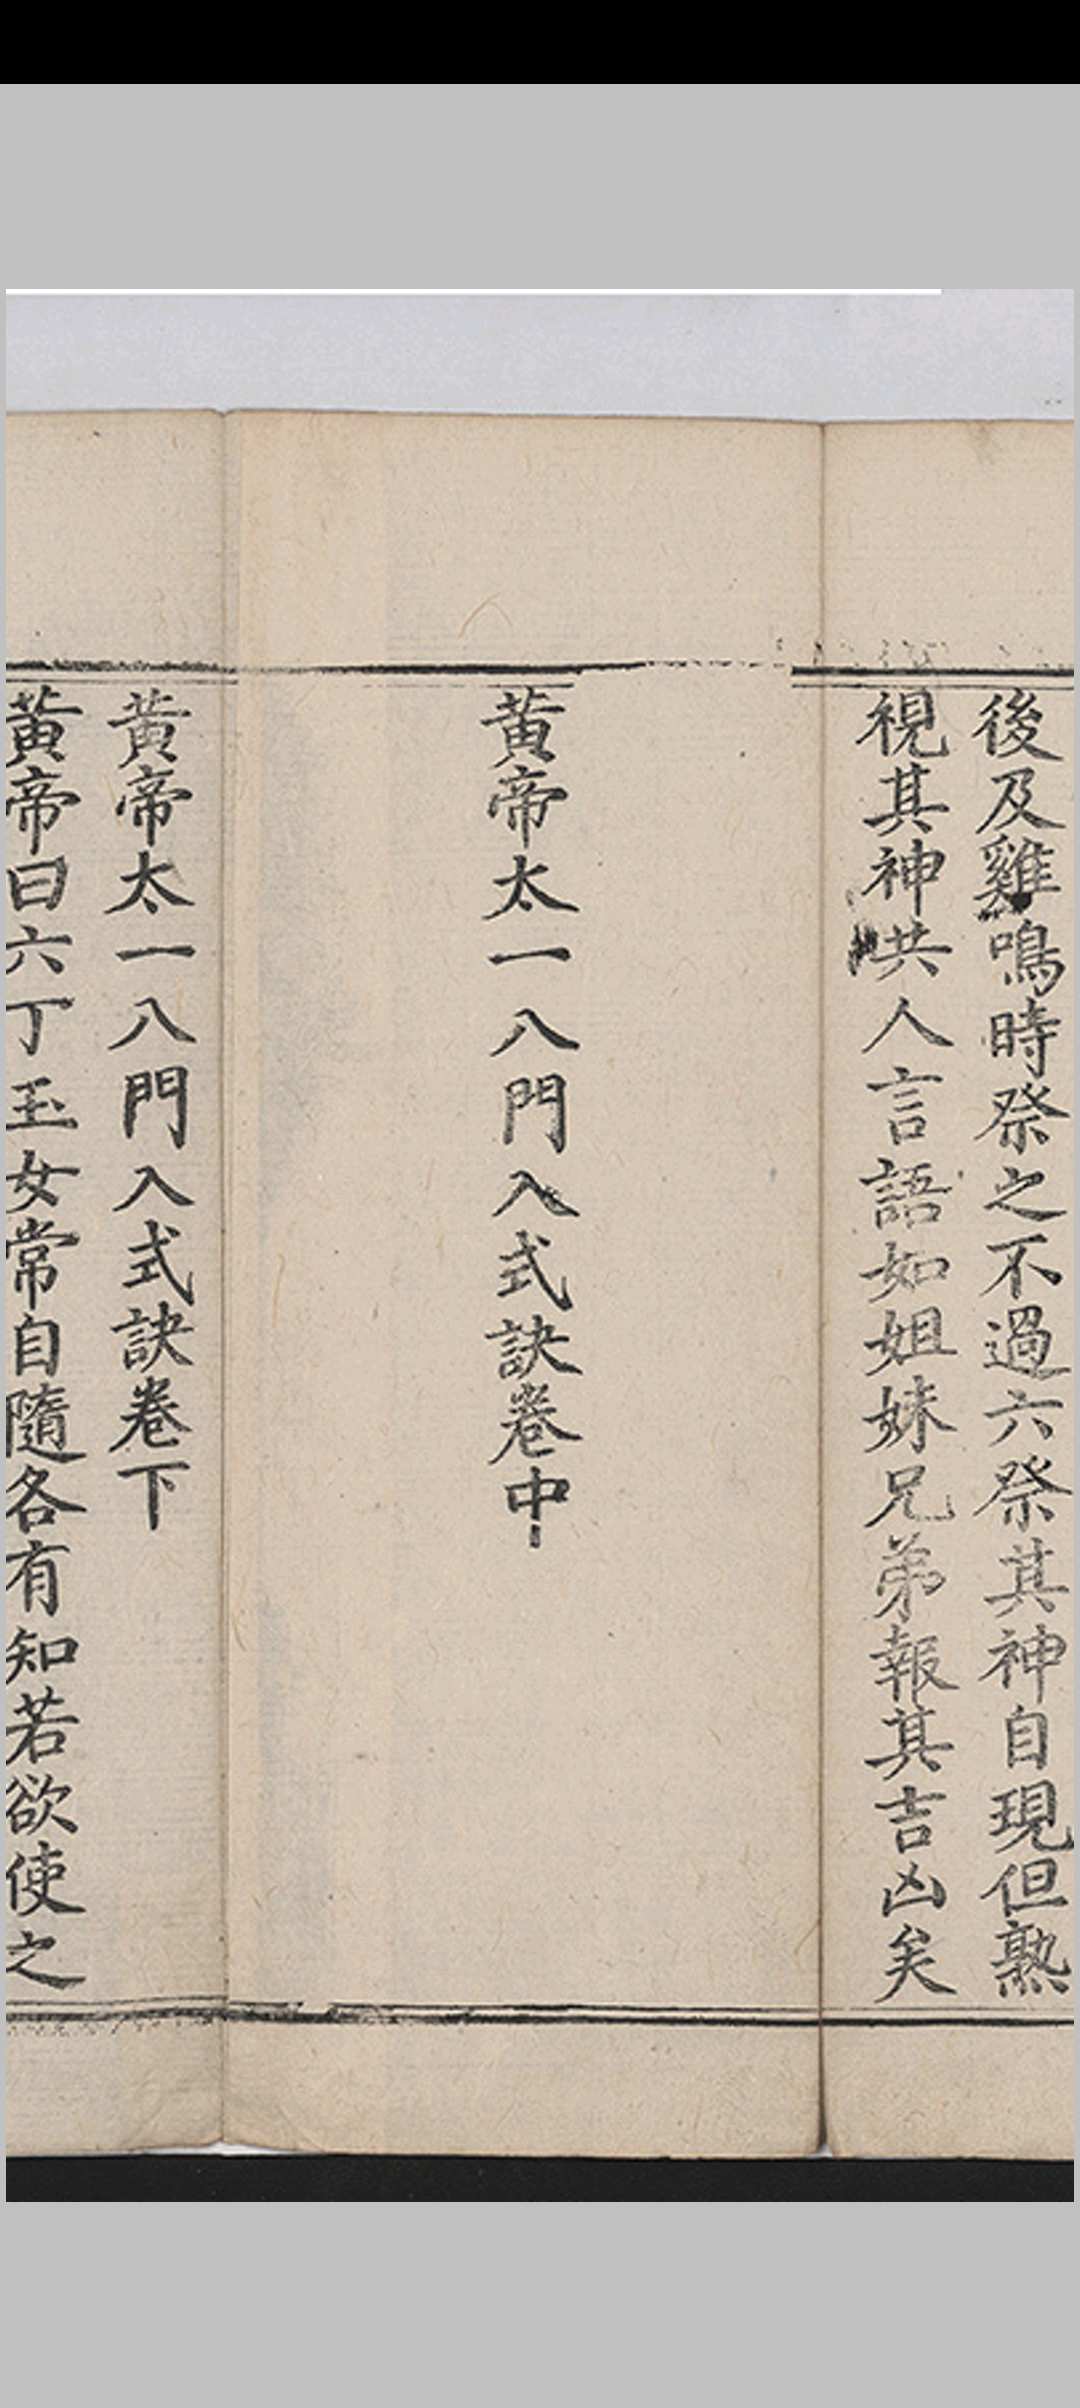 後及雞鳴時祭之不過六祭其神自現但熟
視其神共人言語如姐妹兄弟報其吉凶矣
黃帝太一八門入式訣卷中
黃帝太一八門入式訣卷下
黃帝曰六丁玉女常自隨各有知若欲使之